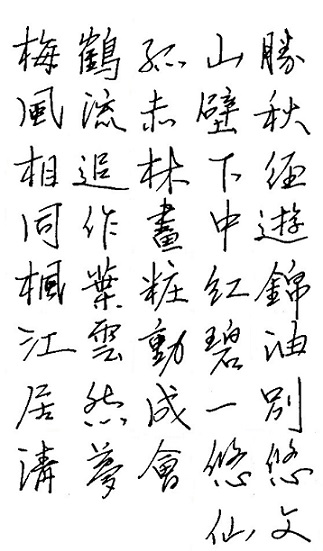 梅鶴孤山勝
風流赤壁秋
相追林下徑
同作畫中遊
楓葉粧紅錦
江雲動碧油
居然成一別
清夢會悠悠
仙文